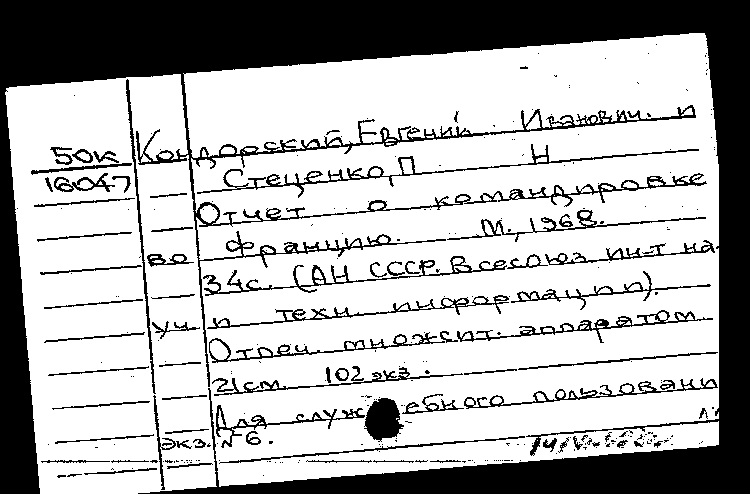 50к Кондорский, Евгений Иванович. и
16047 Стеценко, П Н
Отчет о командировке
во Францию. М., 1968.
34с. (АН СССР. Всесоюз. ин-т на-
уч. и техн. информации).
Отпеч. множит. аппаратом
21см. 102 экз.
Для служебного пользовани
экз. №6.